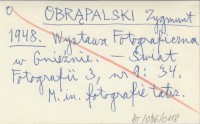 OBRĄPALSKI Zygmunt
1948. Wystawa Fotograficzna
w Gnieźnie. – Świat
Fotografii 3, nr 9: 34.
M. in. fotografie tatr.